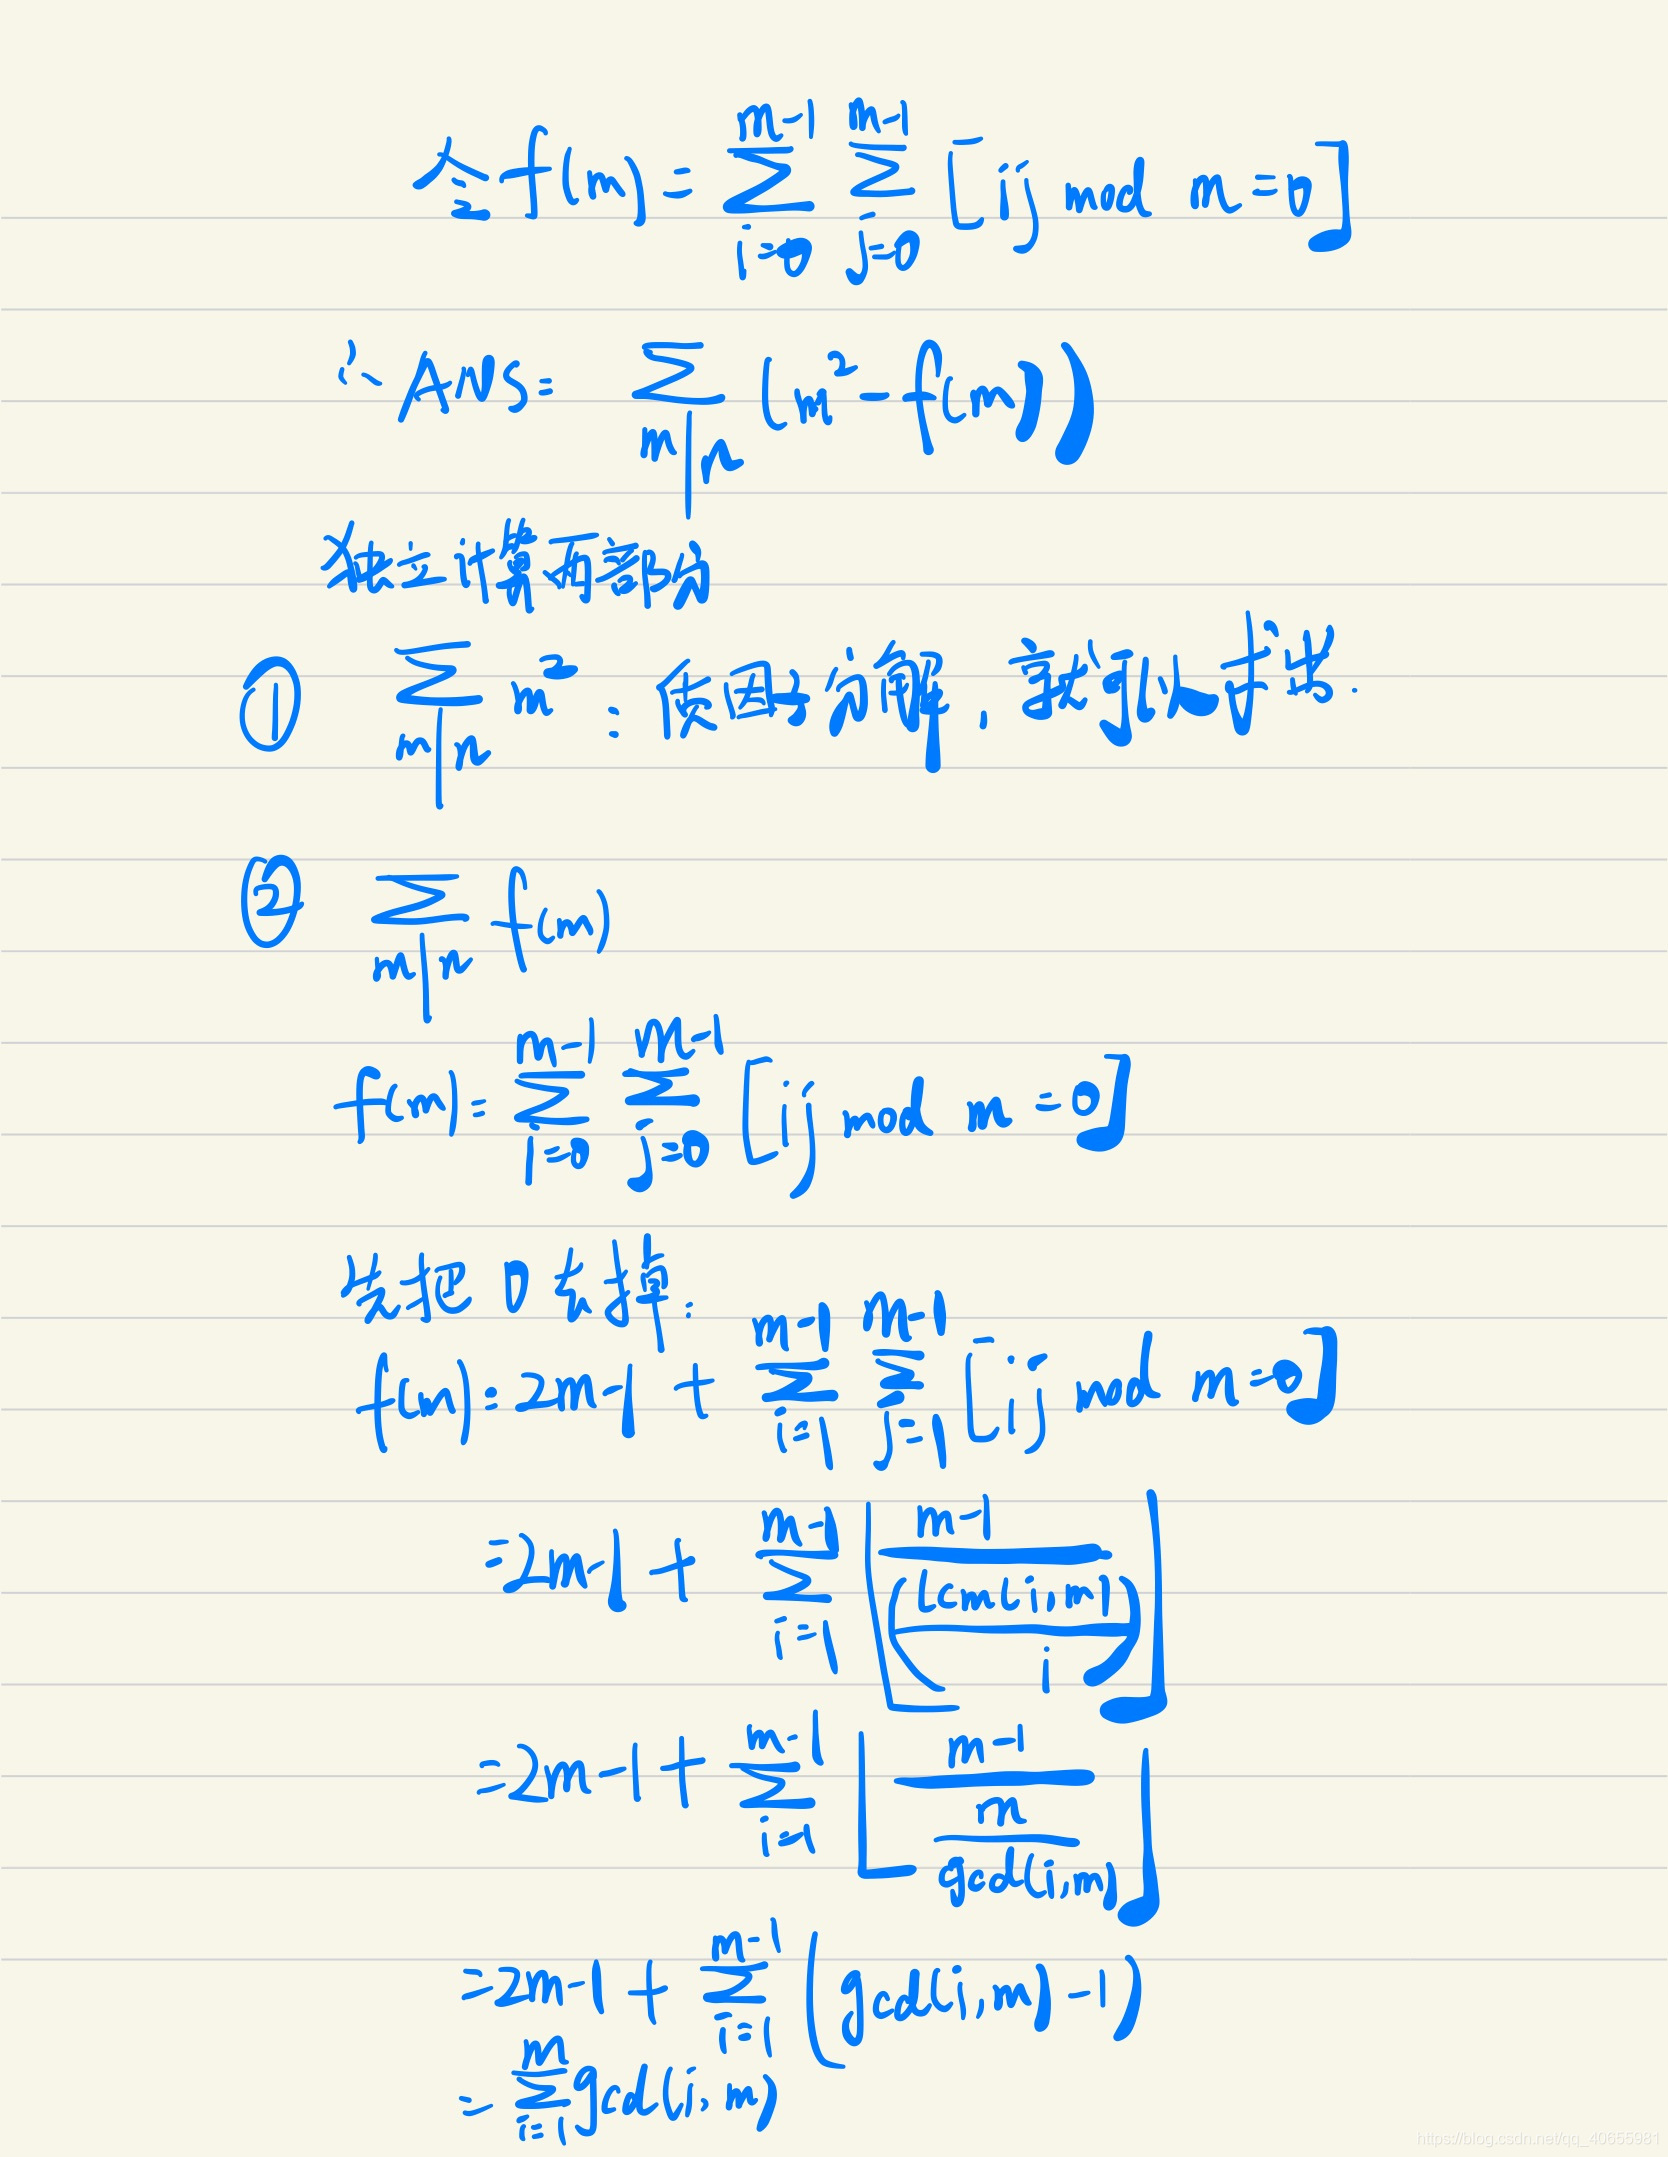 令 f(m) = \sum_{i=0}^{m-1} \sum_{j=0}^{m-1} [ij mod m = 0]
∴ ANS = \sum_{m|n} (m^2 - f(m))
独立计算两部分
① \sum_{m|n} m^2 : 质因子分解, 就可以求出.
② \sum_{m|n} f(m)
f(m) = \sum_{i=0}^{m-1} \sum_{j=0}^{m-1} [ij mod m = 0]
先把 0 去掉:
f(m) = 2m-1 + \sum_{i=1}^{m-1} \sum_{j=1}^{m-1} [ij mod m = 0]
= 2m-1 + \sum_{i=1}^{m-1} \lfloor \frac{m-1}{(\frac{lcm(i,m)}{i})} \rfloor
= 2m-1 + \sum_{i=1}^{m-1} \lfloor \frac{m-1}{\frac{m}{gcd(i,m)}} \rfloor
= 2m-1 + \sum_{i=1}^{m-1} (gcd(i,m)-1)
= \sum_{i=1}^{m} gcd(i,m)
https://blog.csdn.net/qq_40655981